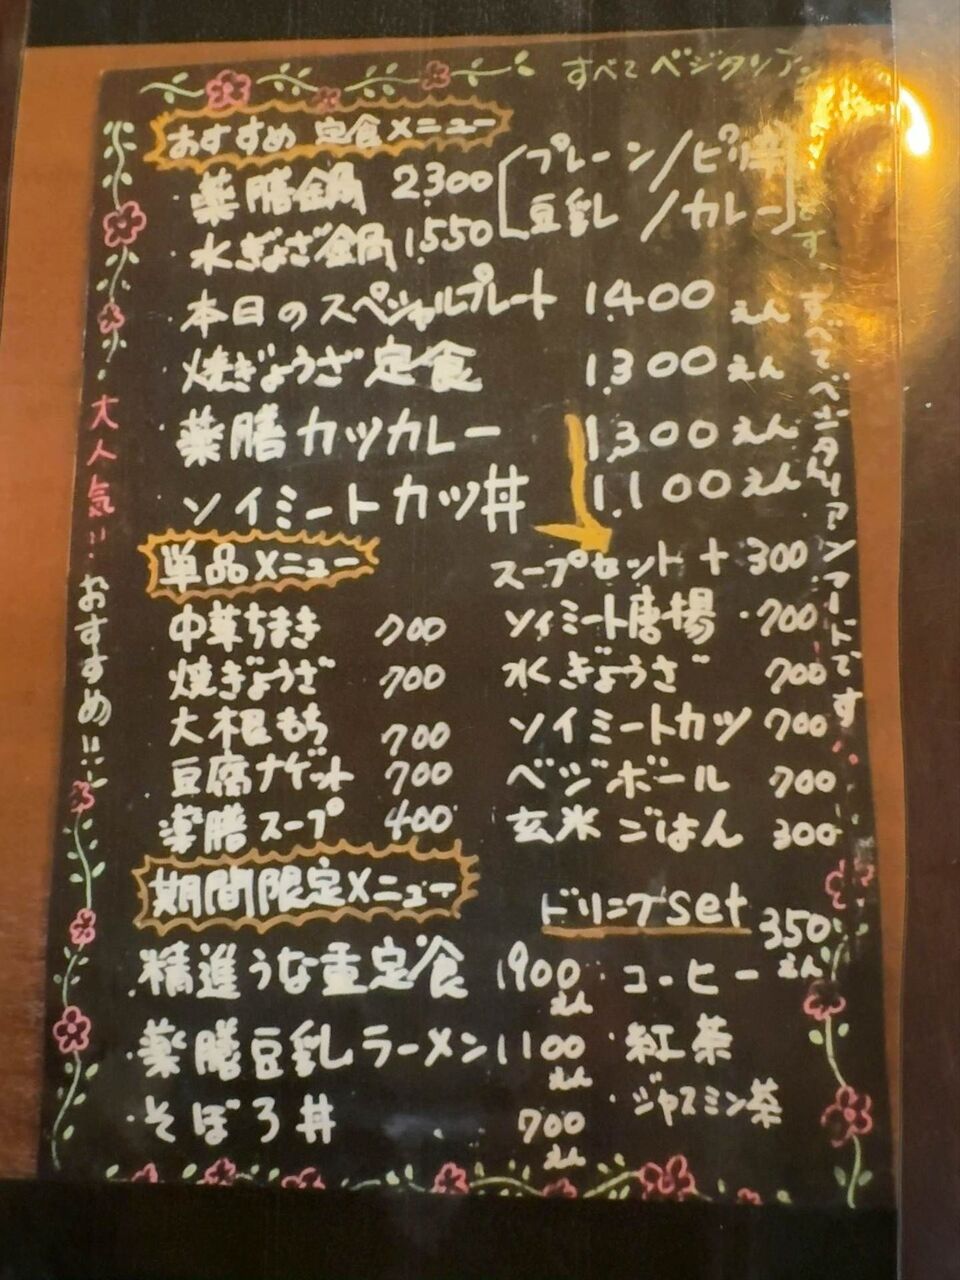 すべてベジタリアン
おすすめ 定食メニュー
薬膳鍋 2300
水ぎょうざ鍋 1,550
プレーン/ピリ辛
豆乳/カレー
本日のスペシャルプレート 1,400えん
焼ぎょうざ定食 1,300えん
薬膳カツカレー 1,300えん
ソイミートカツ丼 1,100えん
スープセット + 300
単品メニュー
中華ちまき 700
焼ぎょうざ 700
大根もち 700
豆腐ナゲット 700
薬膳スープ 400
ソイミート唐揚 700
水ぎょうざ 700
ソイミートカツ 700
ベジボール 700
玄米ごはん 300
期間限定メニュー
精進うな重定食 1900えん
薬膳豆乳ラーメン 1100えん
そぼろ丼 700えん
ドリンクset 350えん
・コーヒー
・紅茶
・ジャスミン茶
大人気!!おすすめ!!
です。すべてベジタリアンフードです